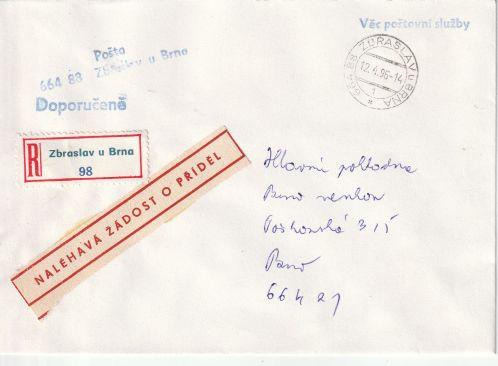 Věc poštovní služby
Pošta
664 83 Zbraslav u Brna
Doporučeně
664 83 ZBRASLAV u BRNA
12.4.96-14
1
*
R
Zbraslav u Brna
98
NALÉHAVÁ ŽÁDOST O PŘÍDĚL
Hlavní pokladna
Brno venkov
315
Brno
664 21